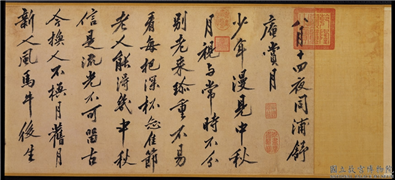 八月十四夜同浦舒
庵賞月
少年漫見中秋
月視與常時不分
別老來珍重不易
看每把深杯佳節
老人能得幾中秋
信是流光不可留古
今換人不換月舊月
新人風馬牛後生
國立故宮博物院